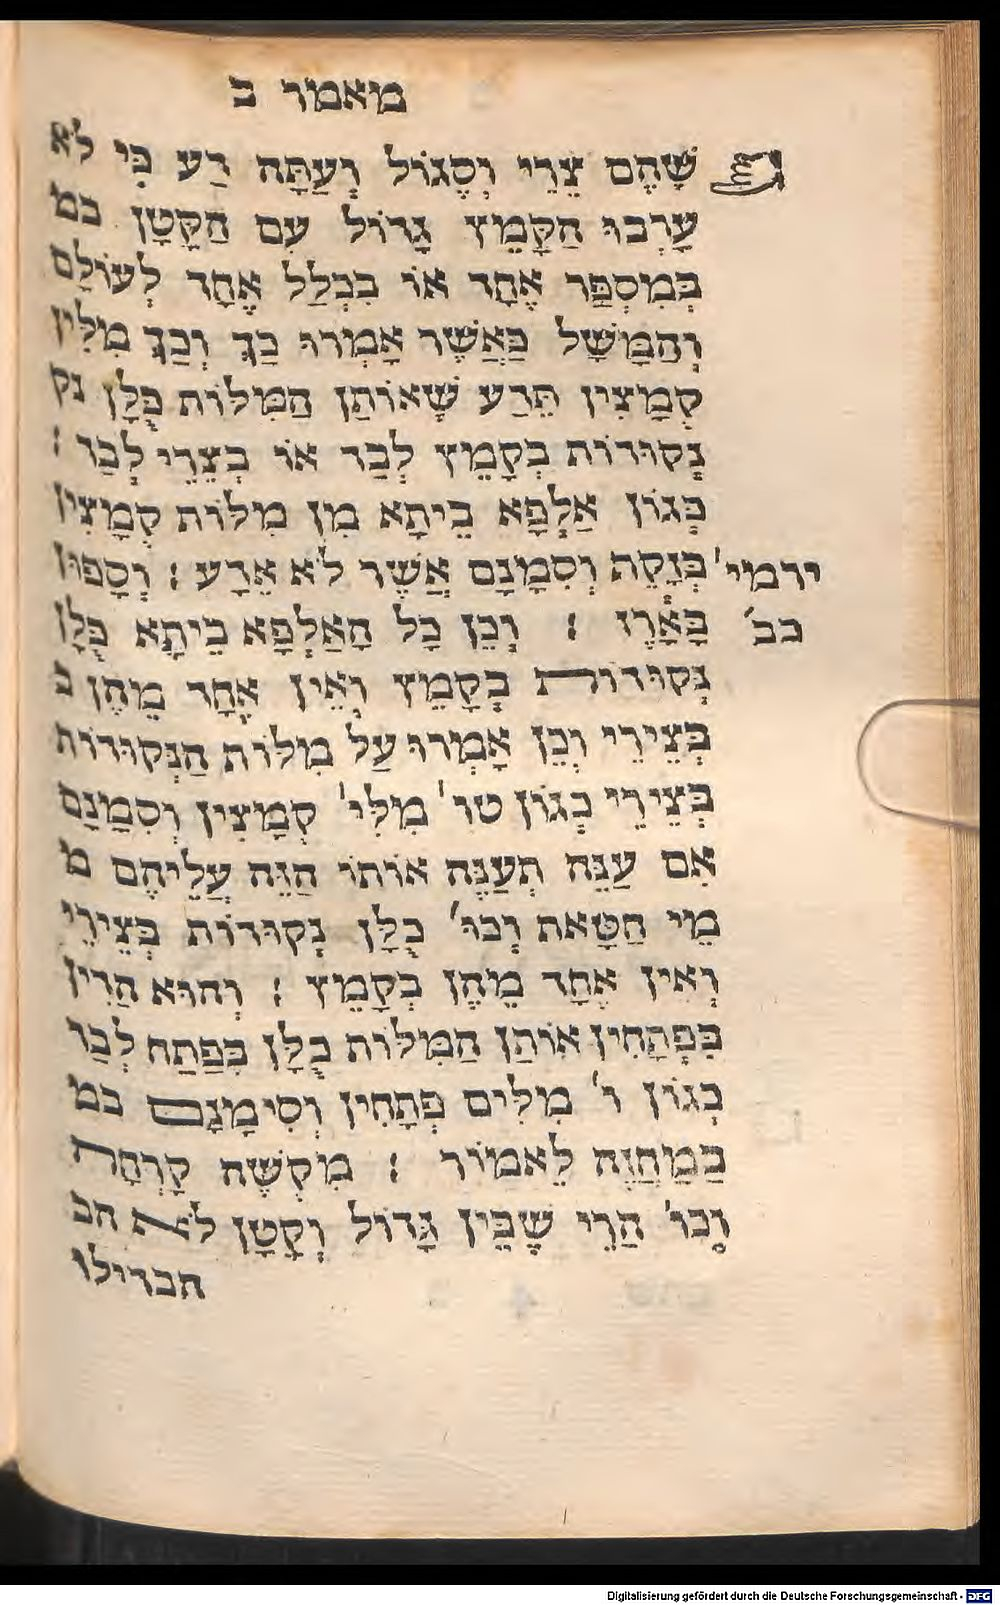 מאמר ב
שֶׁהֶם צֵרֵי וְסֶגוֹל וְעַתָּה דַע כִּי לֹא
עָרְבוּ הַקָּמֵץ גָּדוֹל עִם הַקָּטָן כמ
בְּמִסְפַּר אֶחָד אוֹ בִּכְלַל אֶחָד לְעוֹלָם
וְהַמָּשָׁל כַּאֲשֶׁר אָמְרוּ כָּךְ וְכָךְ מִלִּין
קְמָצִין תֵּדַע שֶׁאוֹתָן הַמִּלּוֹת כֻּלָּן נק
נְקוּדוֹת בְּקָמֵץ לְבַד אוֹ בְּצֵרֵי לְבַד :
כְּגוֹן אַלְפָא בֵיתָא מִן מִלּוֹת קְמָצִין
ירמי' כְּנָקֵה וְסִמָנָם אֲשֶׁר לֹא אֵדָע : וְסָפוּן
כב' בָּאָרֶז : וְכֵן כָּל הָאַלְפָא בֵיתָא כֻּלָּן
נְקוּדוֹת בְּקָמֵץ וְאֵין אֶחָד מֵהֶן ב
בְּצֵירֵי וְכֵן אָמְרוּ עַל מִלּוֹת הַנְּקוּדוֹת
בְּצֵירֵי כְּגוֹן טו' מִלִּי' קְמָצִין וְסִמָנָם
אִם עַנֵּה תְעַנֶּה אוֹתוֹ הַזֵּה עֲלֵיהֶם מ
מֵי חַטָּאת וְכוּ' כֻלָּן נְקוּדוֹת בְּצֵירֵי
וְאֵין אֶחָד מֵהֶן בְּקָמֵץ : וְהוּא הַדִּין
בִּפְתָחִין אוֹתָן הַמִּלּוֹת כֻּלָּן בְּפַתַח לְבַד
כְּגוֹן ו' מִלִּים פְּתָחִין וְסִימָנָם במ
בַּמַּחֲזֶה לֵאמוֹר : מִקְשֶׁה קָרְחָה
וְכוּ' הַרֵי שֶׁבֵּין גָּדוֹל וְקָטָן לֹא הב
הבדילו
Digitalisierung gefördert durch die Deutsche Forschungsgemeinschaft - DFG